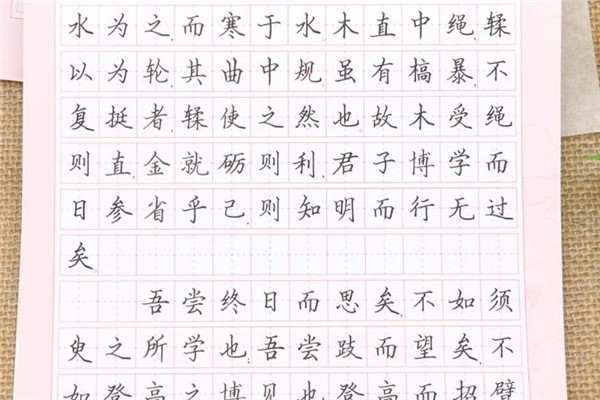 水为之,而寒于水.木直中绳,輮
以为轮,其曲中规.虽有槁暴,不
复挺者,輮使之然也.故木受绳
则直,金就砺则利,君子博学而
日参省乎己,则知明而行无过
矣
吾尝终日而思矣,不如须
臾之所学也;吾尝跂而望矣,不
如登高之博见也.登高而招,臂